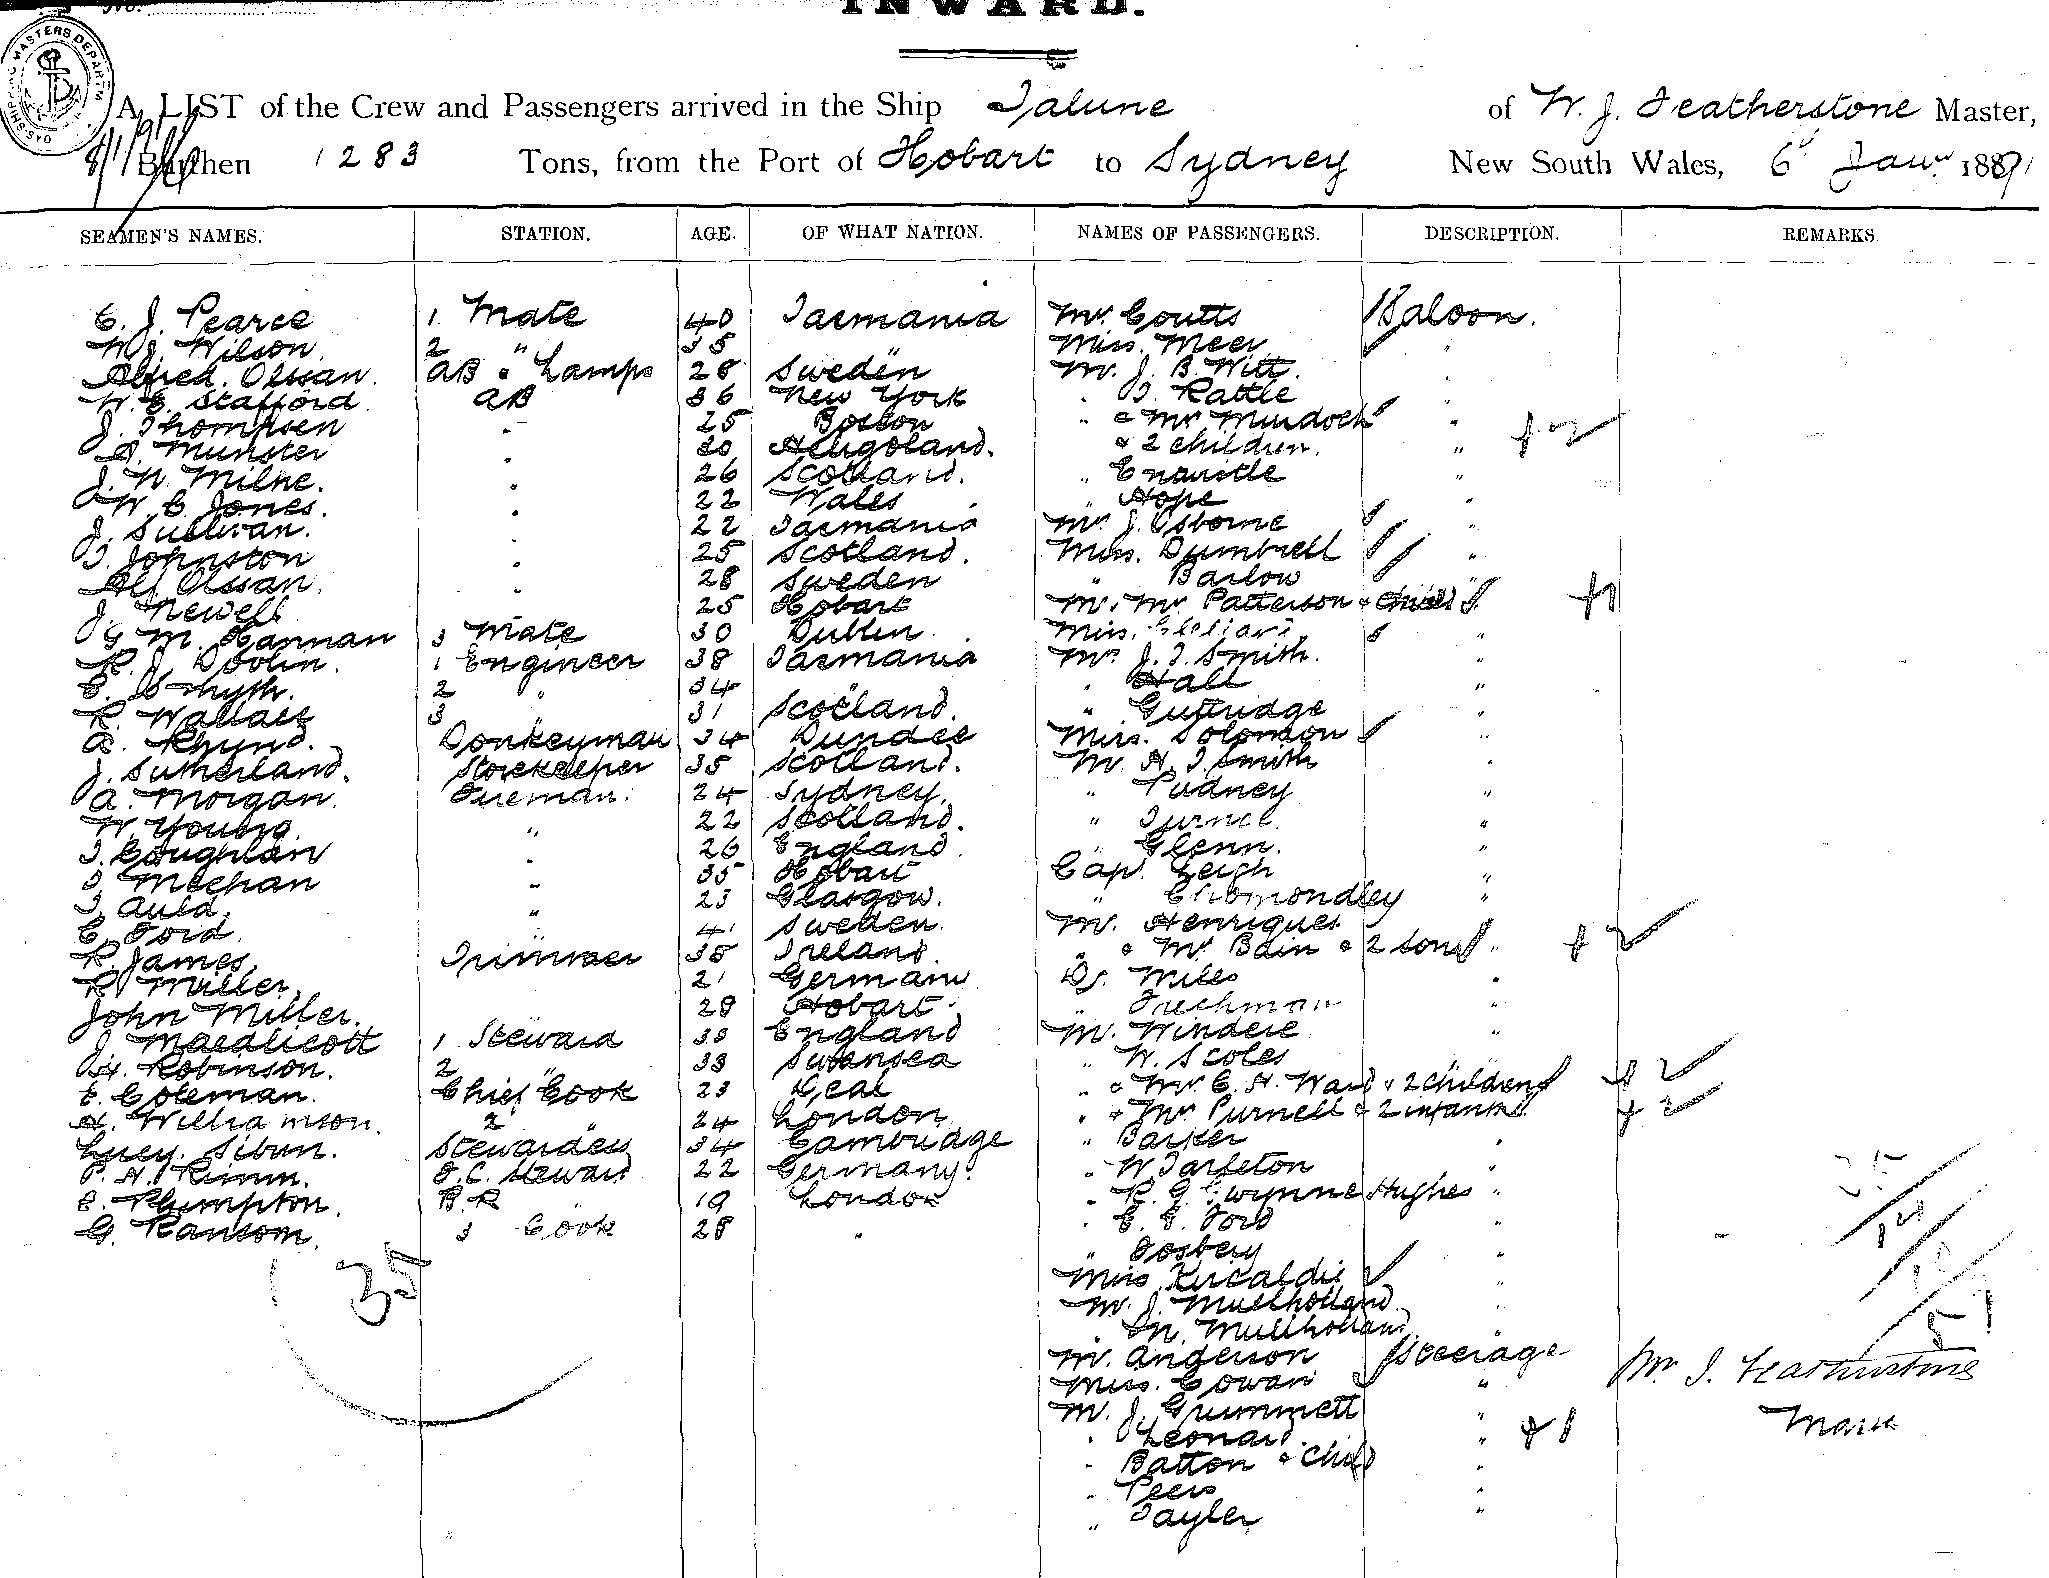 INWARD.
A LIST of the Crew and Passengers arrived in the Ship Talune of W. J. Featherstone Master,
Burthen 1283 Tons, from the Port of Hobart to Sydney New South Wales, 6 Jany 1891
SEAMEN'S NAMES. STATION. AGE. OF WHAT NATION. NAMES OF PASSENGERS. DESCRIPTION. REMARKS
C. J. Pearce 1 Mate 40 Tasmania Mr. Coutts Saloon.
W. J. Wilson 2 " 35 " Miss Meer "
Alfred Olssan AB & Lamps 28 Sweden Mr. J. B. Witt "
W. E. Stafford AB 36 New York " T. Rattle "
J. Thompsen " 25 Boston " & Mrs Murdoch "
A. Munster " 20 Heligoland. & 2 children. " + 2
J. W. Milne. " 26 Scotland. " Entwistle "
W. C. Jones. " 22 Wales " Hope "
J. Sullivan. " 22 Tasmania Mr. J. Osborne "
T. Johnston " 25 Scotland. Miss. Dumbrell "
Alf Olssan. " 28 Sweden " Barlow
J. Newell " 25 Hobart Mr. Mrs Patterson & Child " + 1
G. M. Hannan 3 Mate 30 Dublin Miss.
R. J. Doolin. 1 Engineer 38 Tasmania Mr. J. T. Smith. "
E. Smyth. 2 " 34 " " Hall "
R. Wallace 3 31 Scotland. " Guttridge "
A. Rhynd. Donkeyman 34 Dundee Miss. Solomon
J. Sutherland. Storekeeper 35 Scotland. Mr. H. T. Smith "
A. Morgan. Fireman. 24 Sydney. " Pudney "
W. Young. " 22 Scotland. " "
T. Coughlan " 26 England. " Glenn. "
T. Meehan " 35 Hobart Cap. Leigh "
T. Auld. " 23 Glasgow. " Cholmondley "
C. Ford. " 41 Sweden. Mr. Henriques
R. James, Trimmer 35 Ireland. " & Mrs Bain & 2 sons " + 2
R. Müller. 21 Germany Dr. Miles "
John Miller. 28 Hobart. " "
J. Maealicott 1 Steward 33 England Mr. Windere "
H. Robinson. 2 " 33 Swansea " W. Scoles
E. Coleman. Chief Cook 23 Deal " & Mrs C. H. Ward & 2 children + 2
H. Williamson. 2 " 24 London " & Mrs Purnell & 2 infants + 2
Lucy. Sibun. Stewardess 34 Cambridge " Barker "
P. H. Rimm. F.C. Steward 22 Germany. " W. Tarleton "
E. Plumpton. B.R 19 London " R. G. Gwynne Hughes "
G. Ransom. 3 Cook 28 " " C. E. Ford "
35 " Fosbery "
Miss Kircaldie "
Mr. J. Mullholland "
" M. Mullholland "
Mr. Anderson Steerage
Miss. Cowan "
Mr. J. Grummett "
" Leonard. " + 1
" Batton & Child "
" Peers "
" Tayler "
51
Wm. J. Featherstone
Master